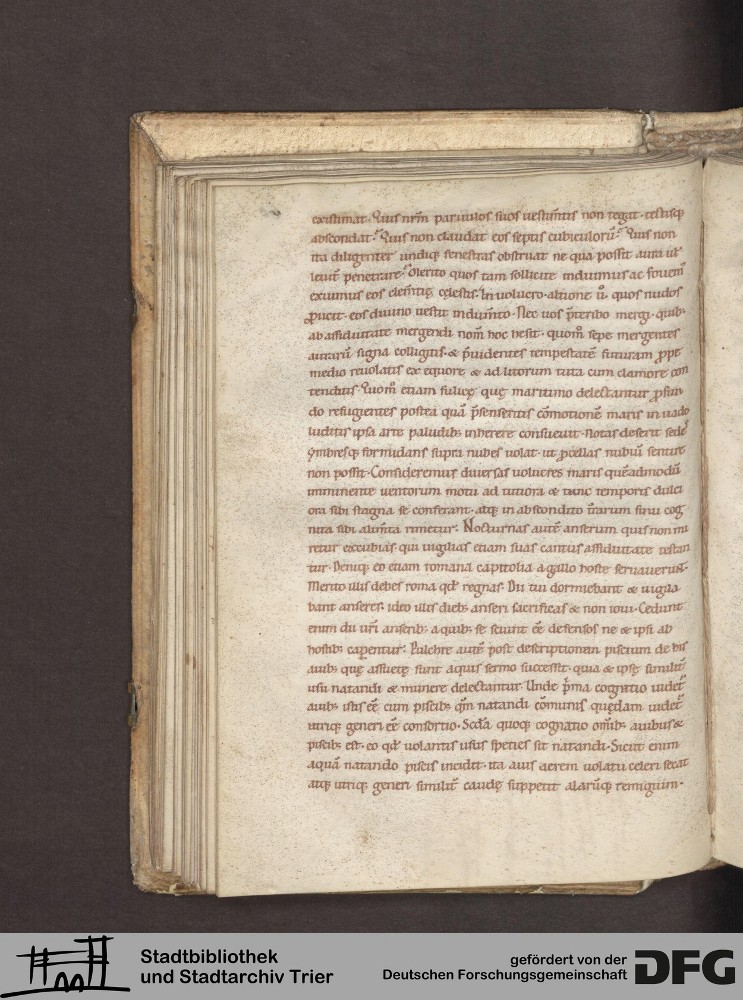 existimat. Quis nr̄m paruulos suos uestim̄tis non tegit. tectisq;
abscondat? Quis non claudat eos septis cubiculorū? Quis non
ita diligenter undiq; fenestras obstruat ne qua possit aura uł
leuit̄ penetrare? Merito quos tam sollicite induimus ac fouem᷒
exuimus eos clem̄tię cęlestis. In uoluero. altione ů. quos nudos
ꝓiicit. eos diuino uestit indum̄to. Nec uos p̄teribo mergi. quib;
ab assiduitate mergendi nom̄ hoc hesit. quom̄ sepe mergentes
aurarū signa colligitis. & p̄uidentes tempestatē futuram ꝓpe
medio reuolatis ex equore & ad litorum tuta cum clamore con
tenditis. Quom̄ etiam fulicę quę maritimo delectantur ꝓfun
do refugientes postea quā p̄senseritis cōmotionē maris in uado
luditis ipsa arte paludib; inherere consueuit. Notas deserit sedes
ymbresq; formidans supra nubes uolat. ut ꝓcellas nubiū sentire
non possit. Consideremus diuersas uolucres maris quēadmodū
imminente uentorum motu ad tutiora & tunc temporis dulci
ora sibi stagna se conferant. atq; in abscondito t̄rarum sinu cog
nita sibi alim̄ta rimetur. Nocturnas autē anserum quis non mi
retur excubias. qui uigilias etiam suas cantus assiduitate testan
tur. Deniq; eo etiam romana capitolia a gallo hoste seruauerunt.
Merito illis debes roma qd̄ regnas. Dii tui dormiebant & uigila
bant anseres. ideo illis dieb; anseri sacrificas & non ioui. Cedunt
enim dii ur̄i anserib; a quib; se sciunt eē defensos ne & ipsi ab
hostib; caperentur. Pulchre autē post descriptionem piscium de his
auib; quę assuetę sunt aquis sermo successit. quia & ipsę similit̄
usu natandi & munere delectantur. Unde p̄ma cognatio uidet᷒
auib; istis eē cum piscib; qm̄ natandi cōmunis quędam uidet᷒
utriq; generi eē consortio. Scd̄a quoq; cognatio om̄ib; auibus &
piscib; est. eo qd̄ uolantis usus species sit natandi. Sicut enim
aquā natando piscis incidit. ita auis aerem uolatu celeri secat
atq; utriq; generi similit̄ caudę suppetit alarūq; remigium.
Stadtbibliothek
und Stadtarchiv Trier
gefördert von der
Deutschen Forschungsgemeinschaft
DFG